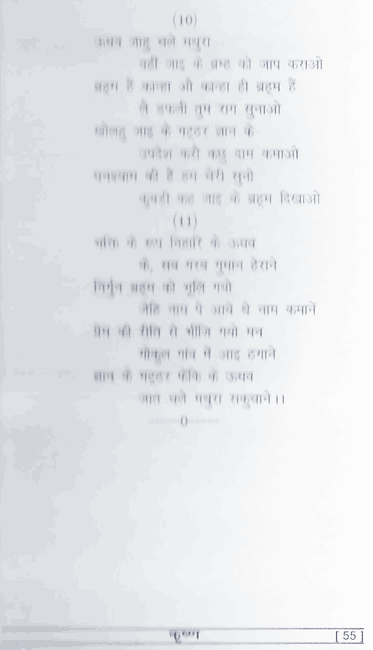 (10)
ऊधव जाहु चले मथुरा
वहीं जाइ के ब्रम्ह को जाप कराओ
ब्रहम है कान्हा औ कान्हा ही ब्रहम हैं
लै डफली तुम राग सुनाओ
खोलहु जाइ के गट्ठर ज्ञान के
उपदेश करौ कछु दाम कमाओ
घनश्याम की हैं हम चेरी सुनो
कुबड़ी कह जाइ के ब्रहम दिखाओ
(11)
भक्ति के रूप निहारि के ऊधव
के, सब गरब गुमान हेराने
निर्गुन ब्रहम को भूलि गयो
जेहि नाम पे आये थे नाम कमाने
प्रेम की रीति से भीजि गयो मन
गोकुल गांव में आइ ठगाने
ज्ञान के गट्ठर फेंकि के ऊधव
जात चले मथुरा सकुचाने।।
0
[ 55 ]